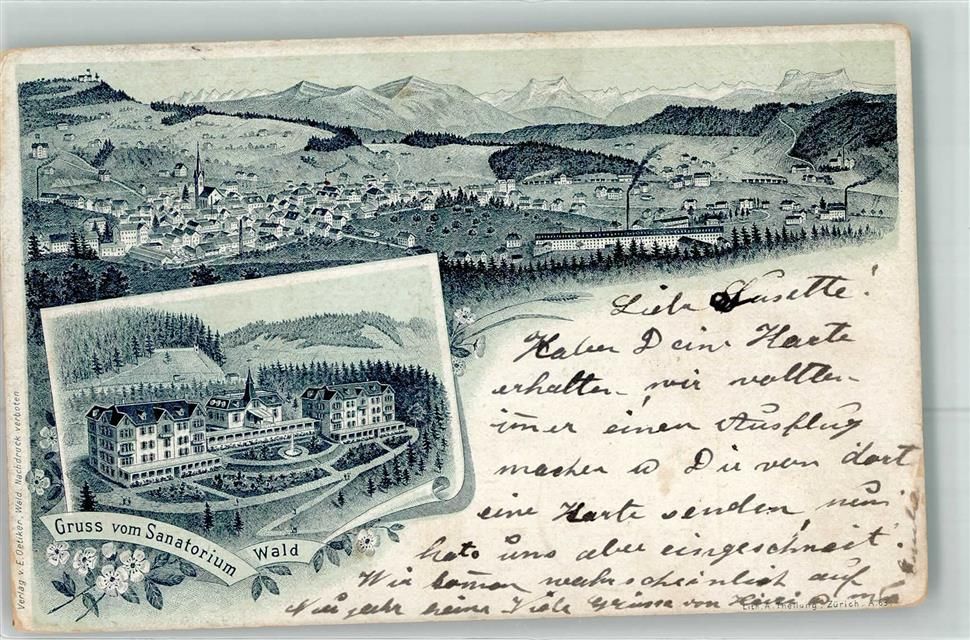 Liebe Susette!
Haben Deine Karte
erhalten, wir wollten
imer einen Ausflug
machen u Dir von dort
eine Karte senden, nun
hats uns aber eingeschneit.
Wir komen wahrscheinlich auf
Neujahr heim Viele Grüsse von
Gruss vom Sanatorium Wald
Verlag v. E. Oetiker, Wald. Nachdruck verboten
Lith. A. Theilung. Zürich. A.63